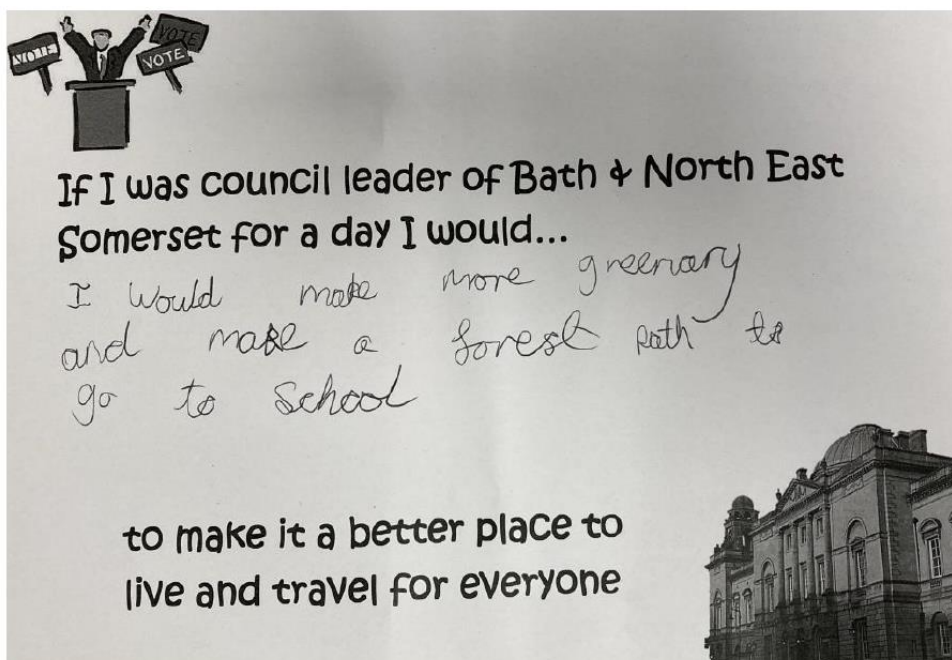 VOTE
VOTE
VOTE
If I was council leader of Bath & North East
Somerset for a day I would...
I would make more greenary
and make a forest path to
go to School
to make it a better place to
live and travel for everyone